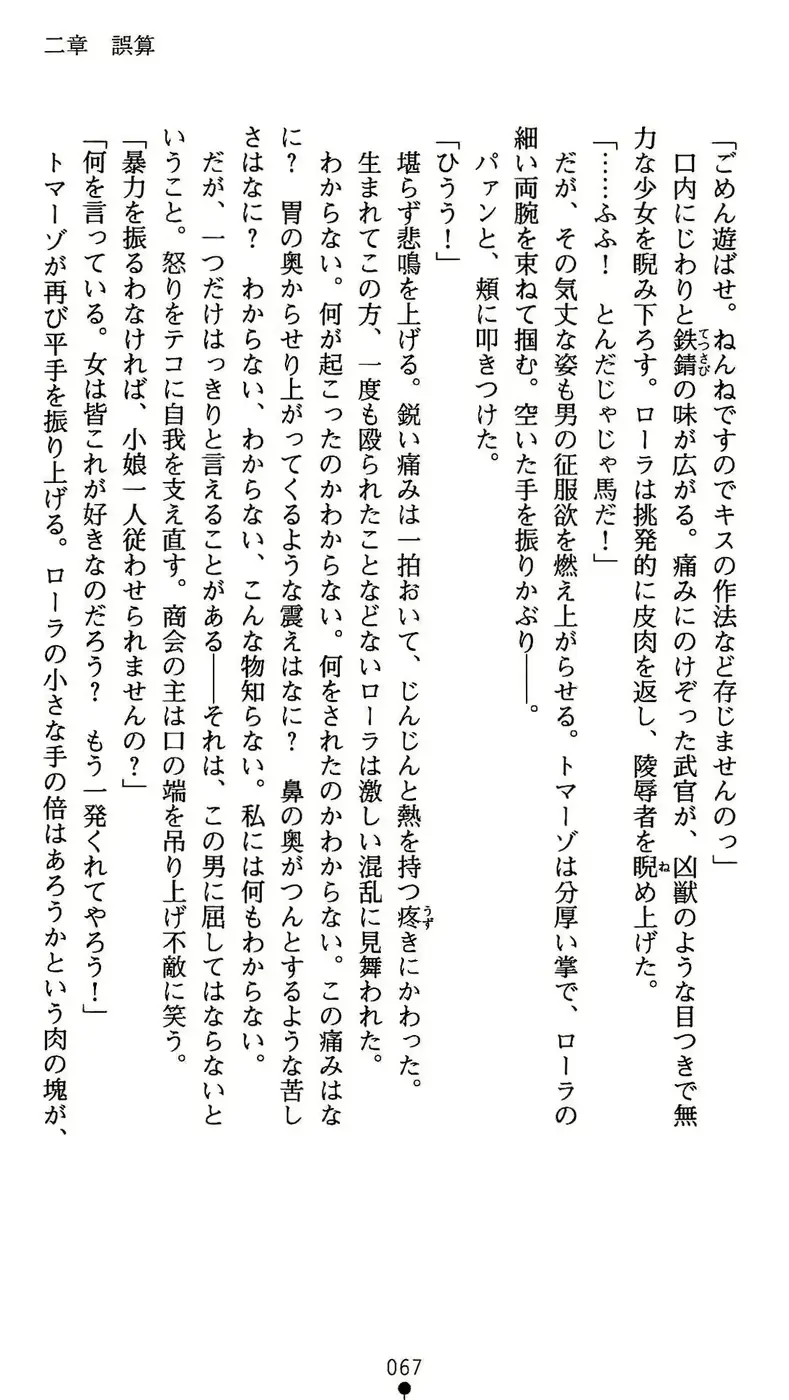 二章　誤算
「ごめん遊ばせ。ねんねですのでキスの作法など存じませんのっ」
口内にじわりと鉄錆の味が広がる。痛みにのけぞった武官が、凶獣のような目つきで無
力な少女を睨み下ろす。ローラは挑発的に皮肉を返し、陵辱者を睨め上げた。
「……ふふ！　とんだじゃじゃ馬だ！」
だが、その気丈な姿も男の征服欲を燃え上がらせる。トマーゾは分厚い掌で、ローラの
細い両腕を束ねて掴む。空いた手を振りかぶり――。
パァンと、頬に叩きつけた。
「ひうう！」
堪らず悲鳴を上げる。鋭い痛みは一拍おいて、じんじんと熱を持つ疼きにかわった。
生まれてこの方、一度も殴られたことなどないローラは激しい混乱に見舞われた。
わからない。何が起こったのかわからない。何をされたのかわからない。この痛みはな
に？　胃の奥からせり上がってくるような震えはなに？　鼻の奥がつんとするような苦し
さはなに？　わからない、わからない、こんな物知らない。私には何もわからない。
だが、一つだけはっきりと言えることがある――それは、この男に屈してはならないと
いうこと。怒りをテコに自我を支え直す。商会の主は口の端を吊り上げ不敵に笑う。
「暴力を振るわなければ、小娘一人従わせられませんの？」
「何を言っている。女は皆これが好きなのだろう？　もう一発くれてやろう！」
トマーゾが再び平手を振り上げる。ローラの小さな手の倍はあろうかという肉の塊が、
067